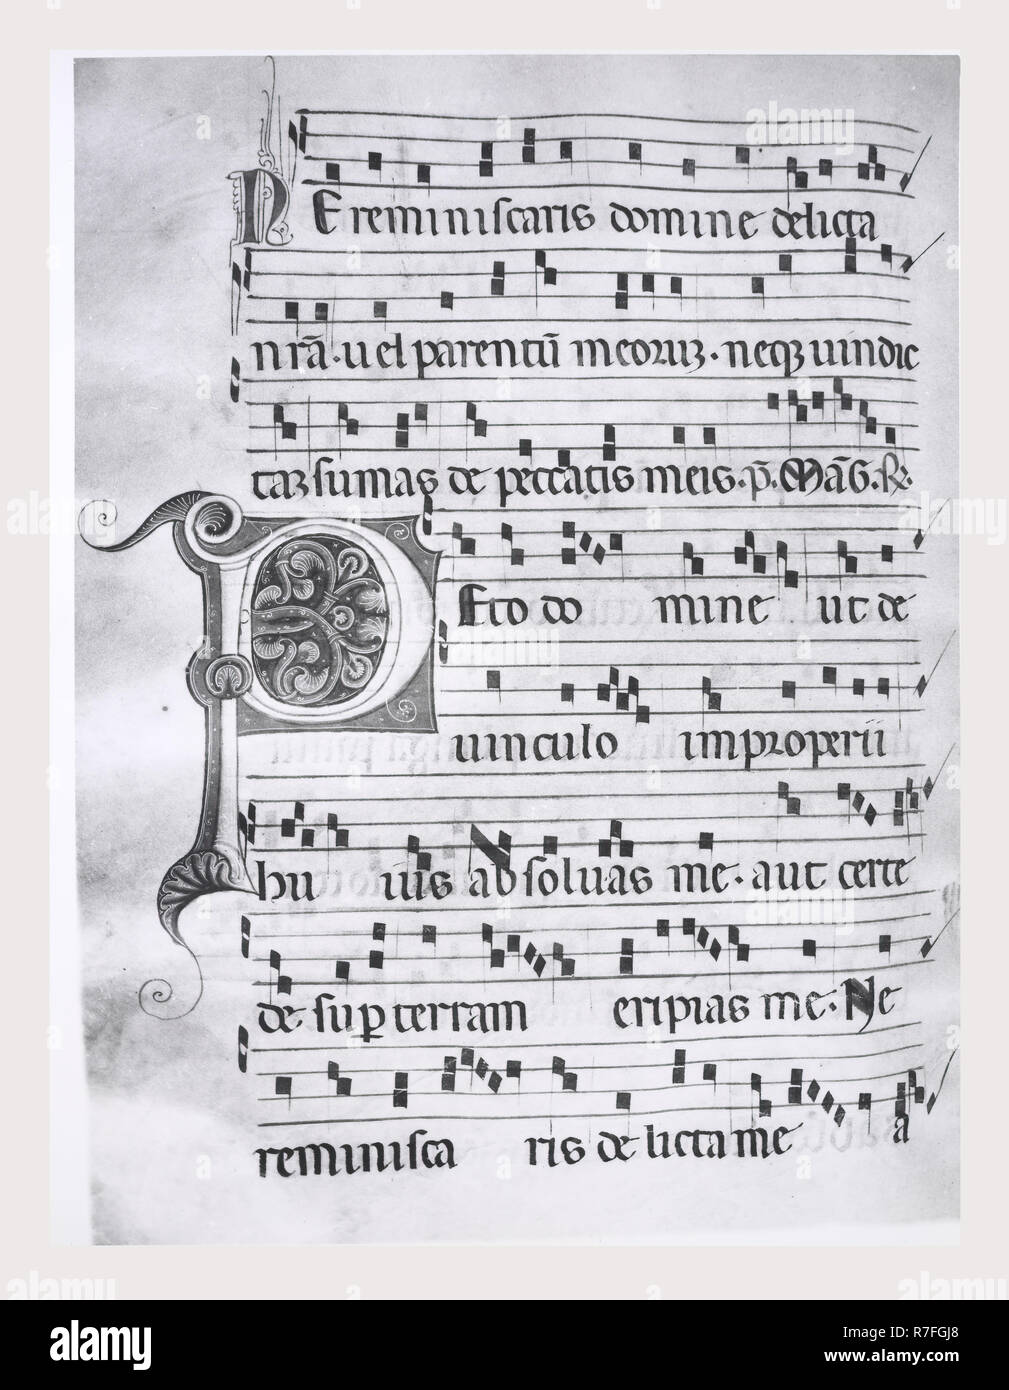 NE reminiscaris domine delicta
nr̄a · uel parentū meoruꝫ · neqꝫ uindic
taꝫ sumas de peccatis meis · p̄. Māg. ℟.
PEto do mine ut de
uinculo improperii
hu ius absoluas me · aut certe
de suꝑ terram eripias me · Ne
reminisca ris delicta me a
alamy
Image ID: R7FGJ8
www.alamy.com